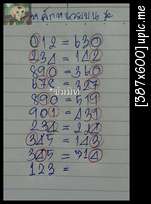 012 = 630
234 = 142
890 = 360
678 = 327
890 = 519
901 = 431
234 = 224
345 = 143
345 = 514
123 =
[387x600]upic.me